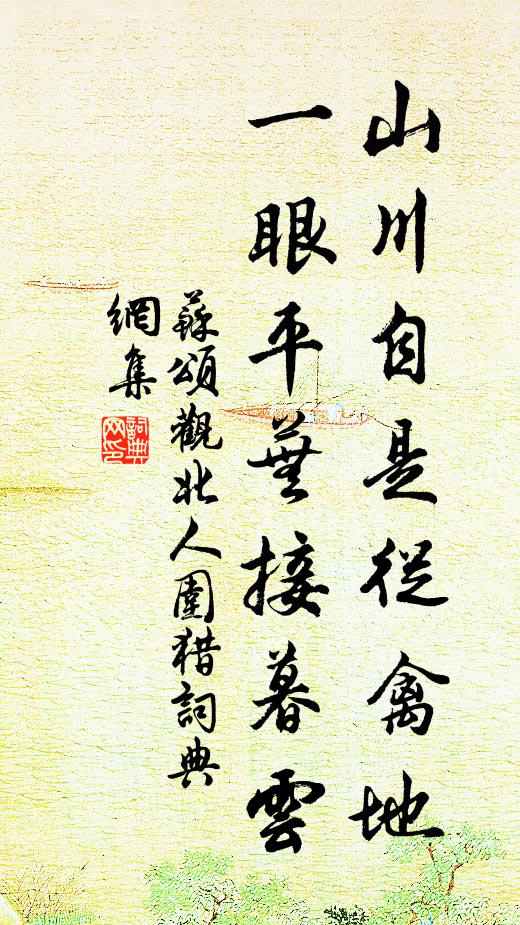 山川自是從禽地
一眼平蕪接暮雲
蘇頌觀北人圍猎詞典
網集
詞典
网印